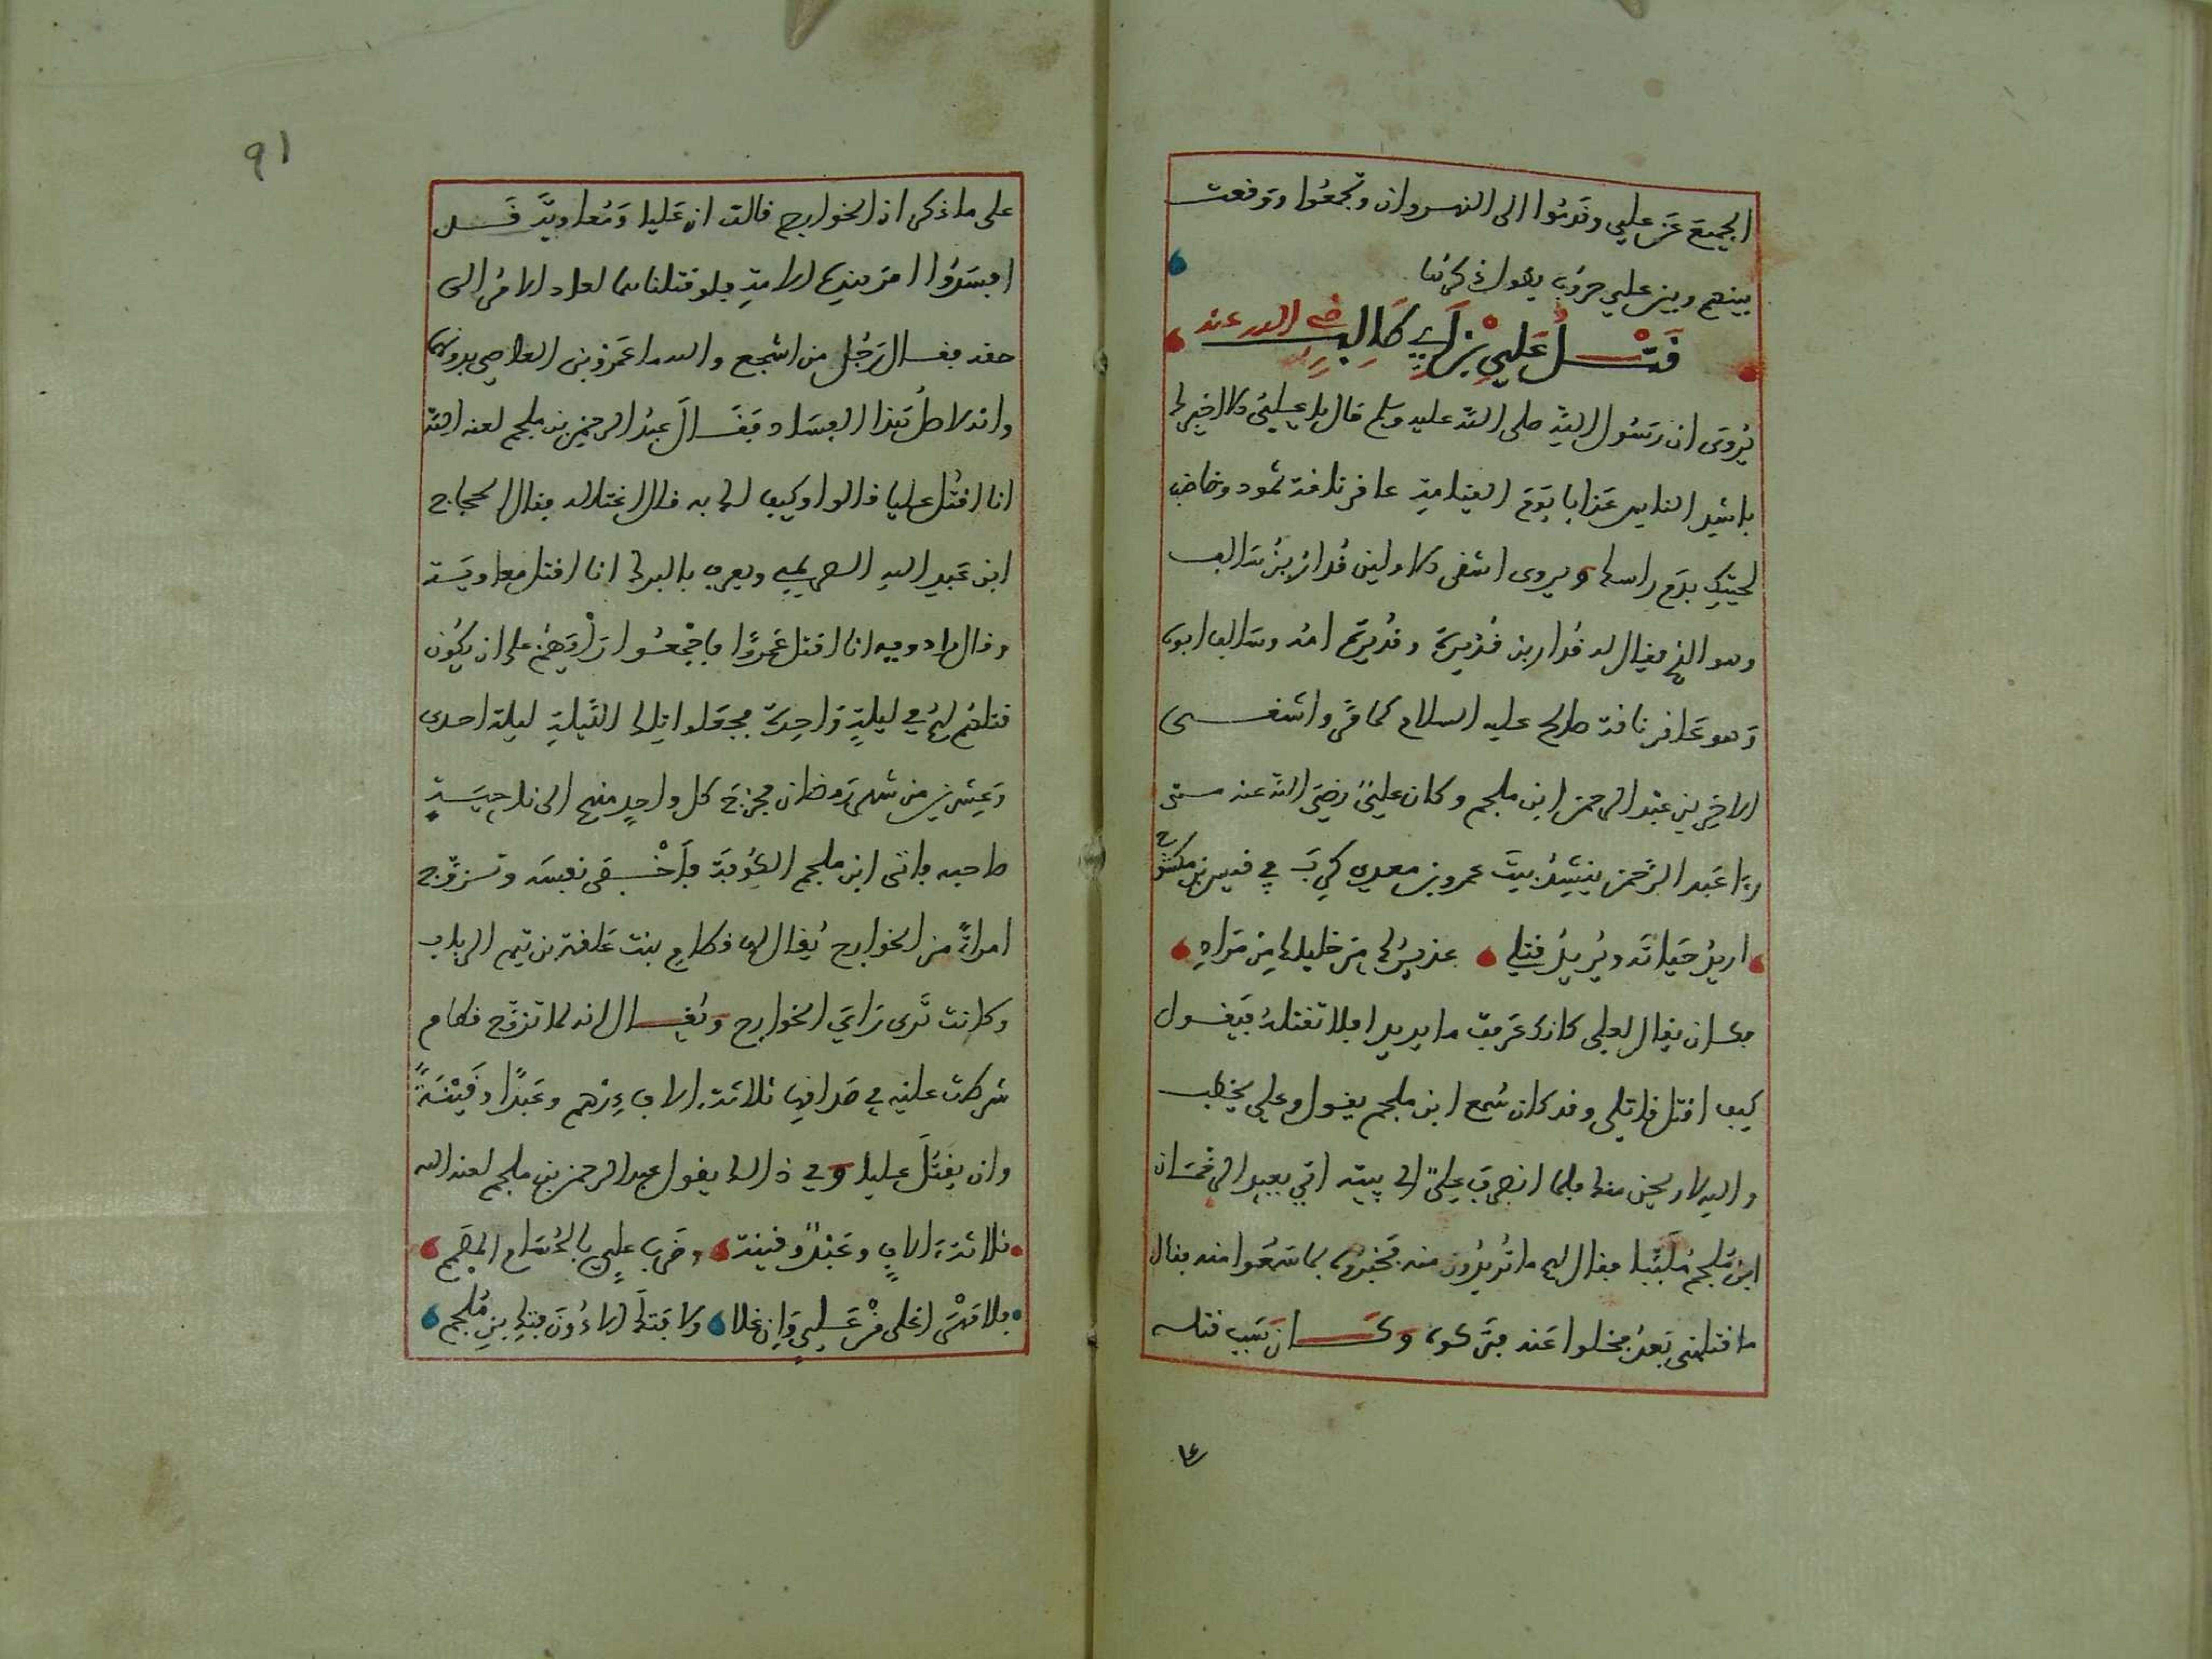 الجميعَ عَن علي وقَدمُوا الى النهروان وتجمعُوا ووقعت
بينهم وبين علي حروب يطول ذكرها
قَتْــلُ عَلِي بْن أَبِي طَالِب رضي الله عنه
يُروى ان رسُول الله صلى الله عليه وسلم قال يا علي الا اخبرك
باشد الناس عَذابا يَوم القيامة عاقر ناقة ثمود وخاضب
لحيتك بدَم راسك ويروى اشقى الاولين قُدارُ بنُ سَالف
وهو الذي يقال له قُدار بن قُدَيرة وقُدَيرة امه وسالف ابوه
وَهو عَاقر ناقة صالح عليه السلام كما مر واشقــى
الاخرين عبد الرحمن ابن ملجم وكان عليٌّ رضيَ الله عنه متى
رءا عَبد الرَّحمن ينشِدُ بيتَ عمرو بن معدي كربَ في قيس بن مكشوح
اريدُ حَياتَه ويُريدُ قتلي عذيرُك مِن خليلك مِن مُرادِ
فكان يقال لعلي كانك عَرَفت ما يريد افلا تقتلهُ فيَقــول
كيف اقتل قاتلي وقد كان سُمع ابن ملجم يقول وعلي يخطب
والله لاريحن منك فلما انصرفَ عليٌّ الى بيته اتي بعبد الرحمان
ابن مُلجم مُلَبَّبا فقال لهم ما تُريدُون منه فخبرُوه بما سَمعُوا منه فقال
ما قتلني بَعدُ فخلوا عَنه فتركوه وكَـــانَ سَبَب قتله
91
على ما ذكر ان الخوارج قالت ان عَليا ومُعاويةَ قَــد
افسَدُوا امرَ هذه الامة فلو قتلناهما لعاد الامر الى
حقه فقــال رَجُل من اشجع والله ما عَمرو بن العاصي بدونهما
وانه لاصلُ هَذا الفسَاد فَقَــالَ عبدُ الرحمن بن ملجم لعنه الله
انا اقتُل عليا قالوا وكيف لك به قال اغتاله فقال الحجاج
ابن عَبد الله الصريمي ويعرف بالبرك انا اقتل معاويَــة
وقال زادويه انا اقتل عَمرًوا فاجْمعُــوا رَأْيَهُم على ان يكُون
قتلهُم لهم في ليلةٍ وَاحدة فجعلوا تلك الليلة ليلة احدى
وَعشرين من شهر رَمَضان فخرَج كل واحدٍ منهم الى ناحيَــةٍ
صاحبه فاتى ابن ملجم الكُوفةَ فاَخْــفى نفسَه وتــزوَّج
امراةً من الخوارج يُقال لها قطام بنت عَلقمة من تيم الرباب
وكانت تَرى رَاي الخوارج ويُقــال انه لما تزوّج قطام
شرطت عليه في صَداقها ثلاثة الاف دِرْهم وعَبدًا وقَيْنَــةً
وان يقتُلَ عليا وفي ذالك يقول عبد الرحمن بن ملجم لعنه الله
ثلاثة ءالافٍ وعَبْدٌ وقينة وضَرب علي بالحُسَام المصمم
فلا مَهْرَ اغلى مِنْ عَــليٍّ وَاِن غلا ولا فَتكَ الا دُونَ فتك ابن مُلجم